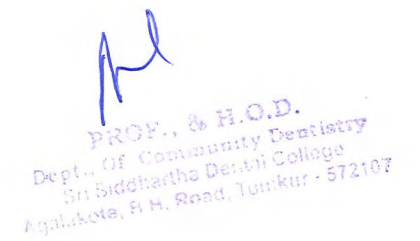 PROF., & H.O.D.
Dept., Of Community Dentistry
Sri Siddhartha Dental College
Agalakote, B.H. Road, Tumkur - 572107